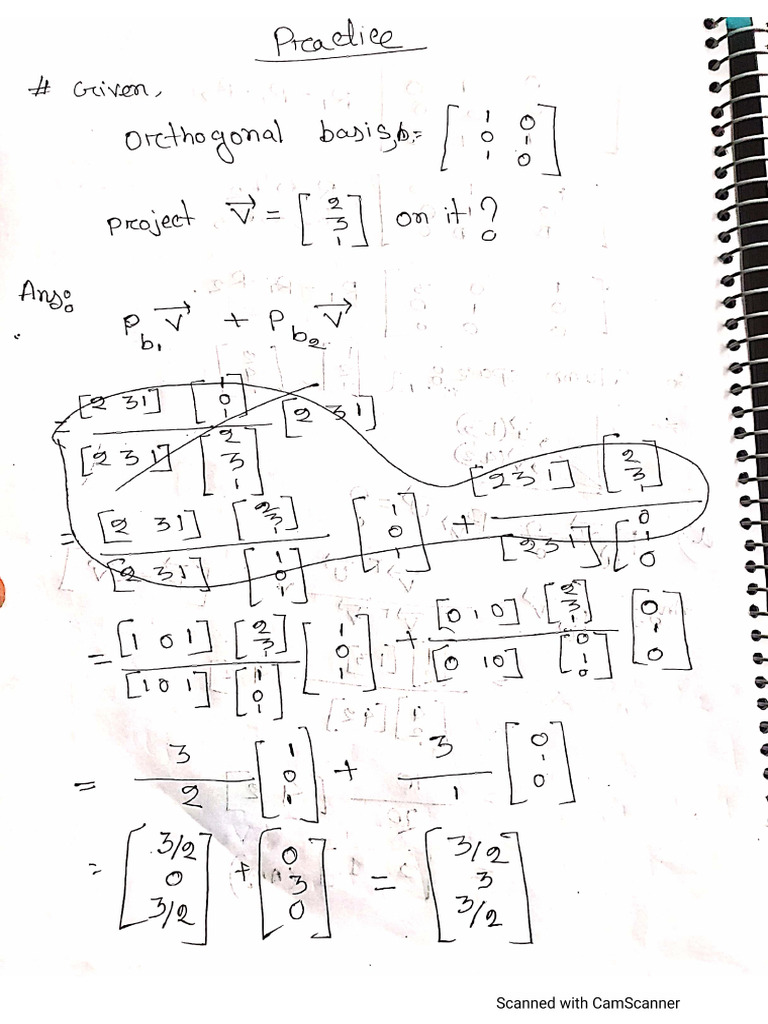 Practice
# Given,
Orthogonal basis, b = [1 0; 0 1; 1 0]
project v⃗ = [2; 3; 1] on it?
Ans:
P_b₁ v⃗ + P_b₂ v⃗
= [2 3 1] [1; 0; 1] / [2 3 1] [2; 3; 1] [2 3 1]
= [2 3 1] [2; 3; 1] / [2 3 1] [1; 0; 1] [1; 0; 1] + [2 3 1] [2; 3; 1] / [2 3 1] [0; 1; 0]
= [1 0 1] [2; 3; 1] / [1 0 1] [1; 0; 1] [1; 0; 1] + [0 1 0] [2; 3; 1] / [0 1 0] [0; 1; 0] [0; 1; 0]
= 3/2 [1; 0; 1] + 3/1 [0; 1; 0]
= [3/2; 0; 3/2] + [0; 3; 0] = [3/2; 3; 3/2]
Scanned with CamScanner